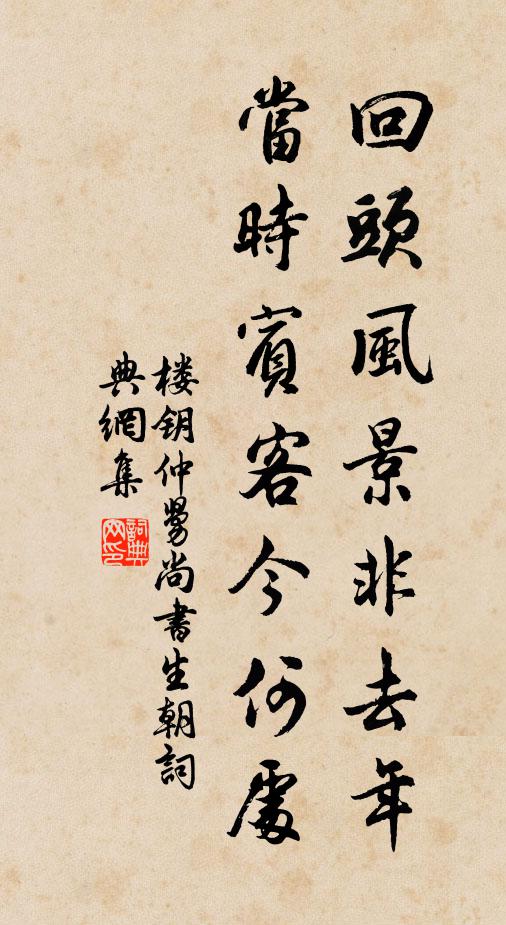 回頭風景非去年
當時賓客今何處
楼钥仲舅尚書生朝詞
典網集
詞典
网印